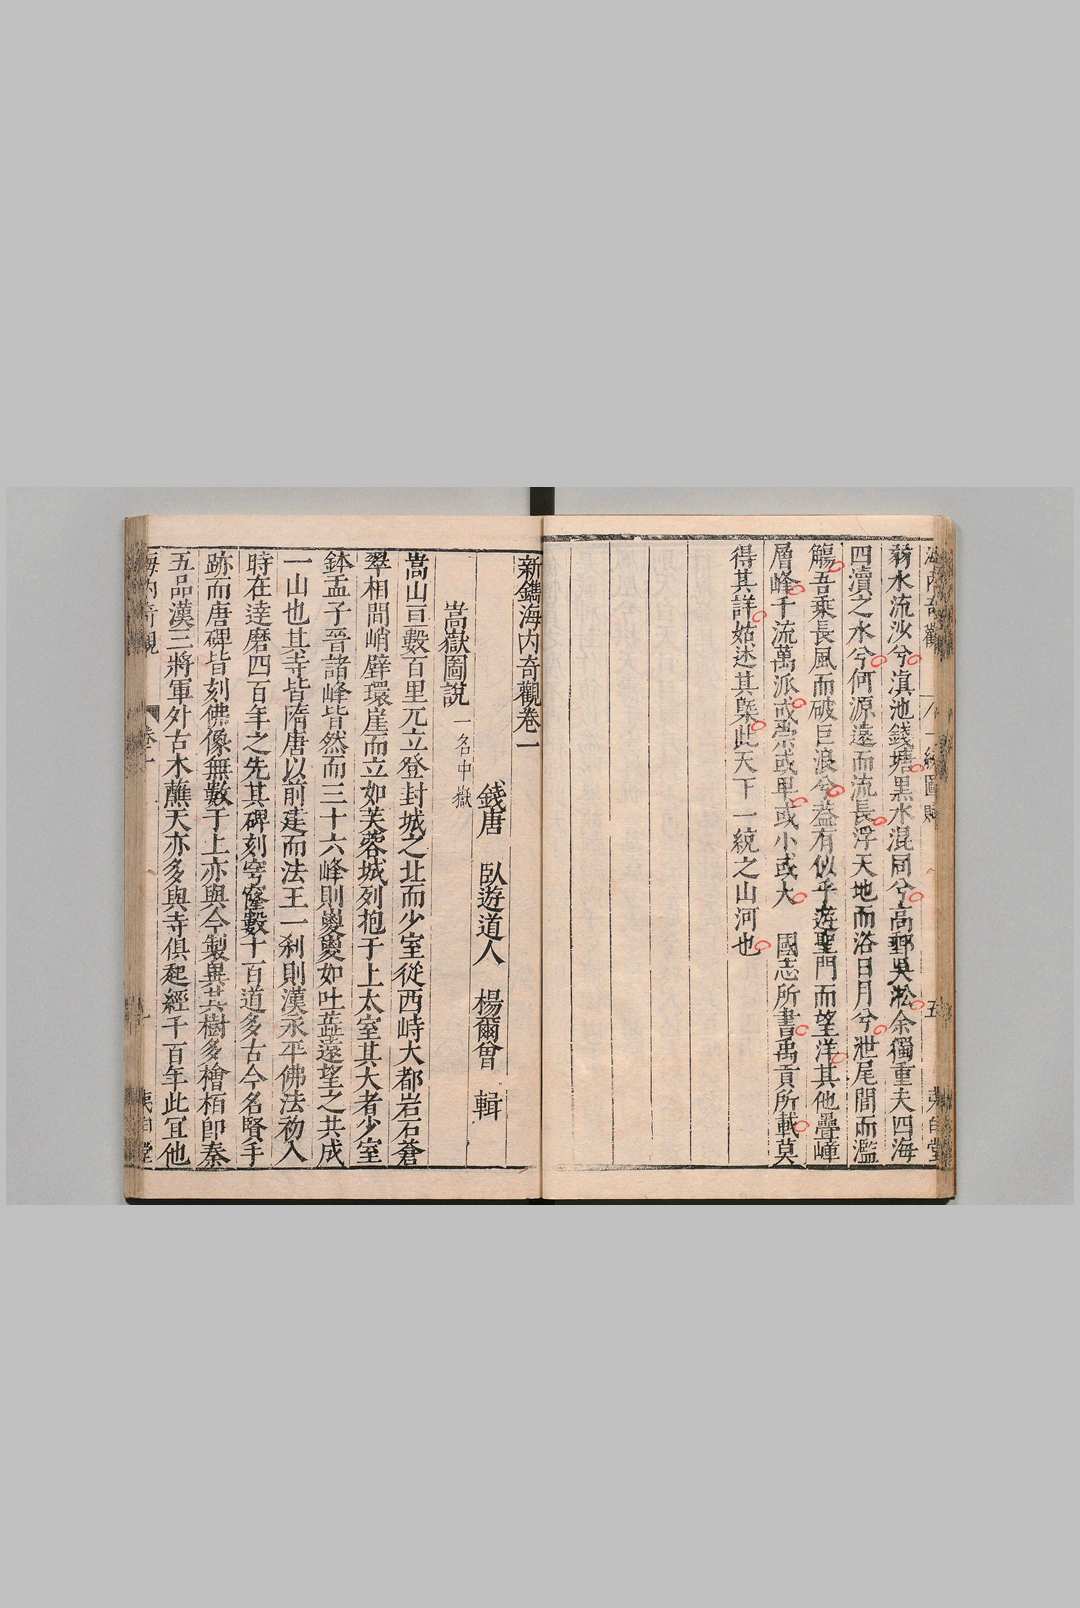 海內奇觀 一統圖賦 五 夷白堂
弱水流沙兮滇池錢塘黑水混同兮高郵吳淞余獨重夫四海
四瀆之水兮何源遠而流長浮天地而浴日月兮泄尾閭而濫
觴吾乘長風而破巨浪兮蓋有似乎遊聖門而望洋其他疊嶂
層峰千流萬派或崇或卑或小或大 國志所書禹貢所載莫
得其詳姑述其槩此天下一統之山河也
新鐫海內奇觀卷一
錢唐 臥遊道人 楊爾曾 輯
嵩嶽圖說 一名中嶽
嵩山亘數百里兀立登封城之北而少室從西峙大都岩石蒼
翠相間峭壁環崖而立如芙蓉城列抱于上太室其大者少室
鉢盂子晉諸峰皆然而三十六峰則夔夔如吐蕋遠望之共成
一山也其寺皆隋唐以前建而法王一刹則漢永平佛法初入
時在達磨四百年之先其碑刻穹窿數十百道多古今名賢手
跡而唐碑皆刻佛像無數于上亦與今製異其樹多檜栢卽秦
五品漢三將軍外古木蘸天亦多與寺俱起經千百年此宜他
海內奇觀 卷一 一 夷白堂